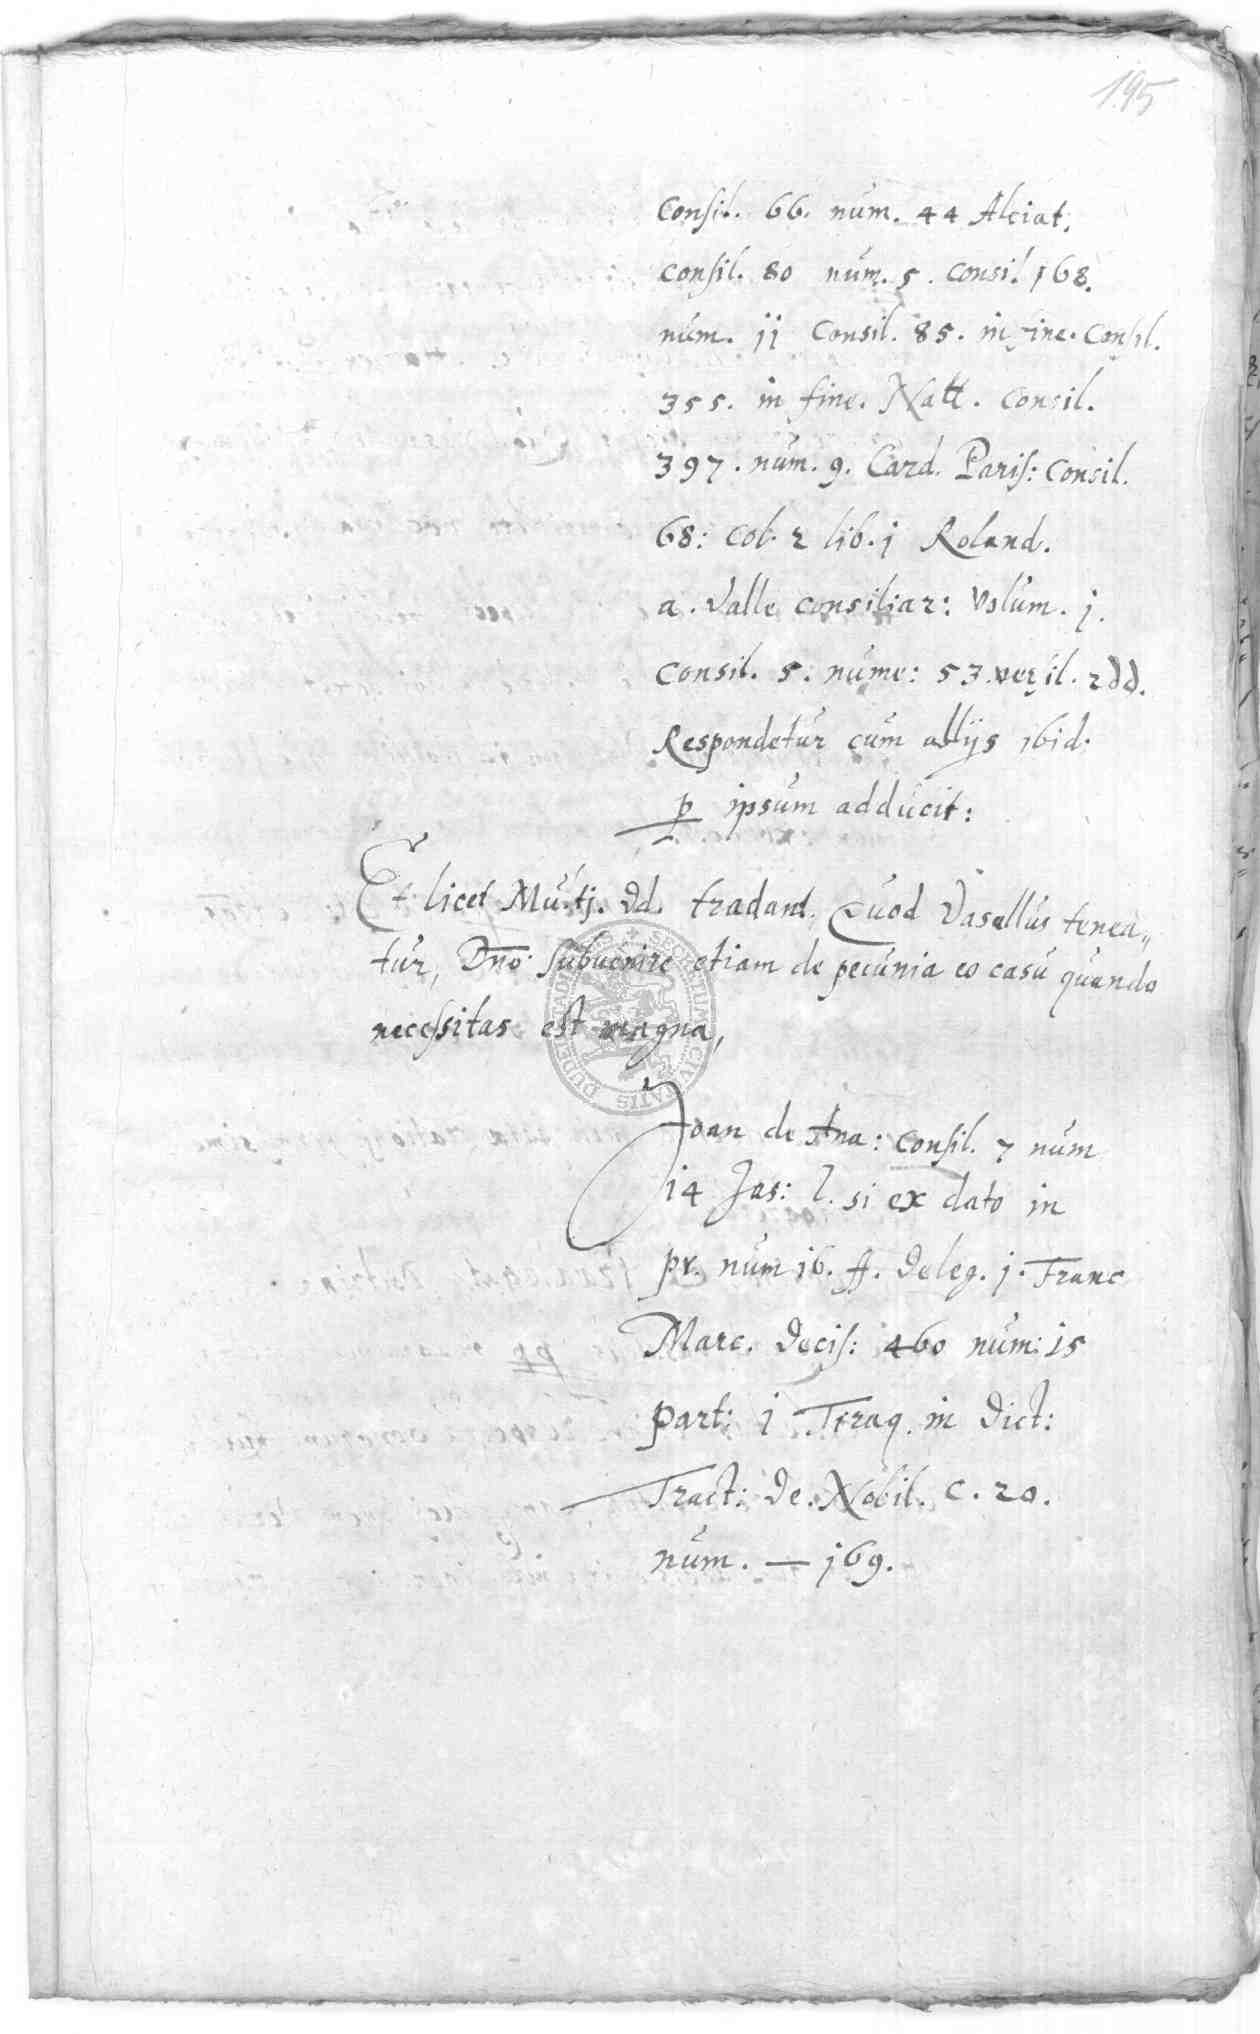 195
Consil. 66. num. 44 Alciat.
consil. 80 num. 5. Consil 168.
num. ii Consil. 85. in fine. Consil.
355. in fine. Natt. Consil.
397. num. 9. Card. Paris: Consil.
68: Col. 2 lib. j Roland.
a. Valle consiliar: Volum. j.
Consil. 5. nume: 53. versil. 2dd.
Respondetur cum allijs ibid.
p ipsum adducit:
Et licet Multj. Dd. tradant, Quod Vasallus tenea„
tur, Dno. Subuenire etiam de pecunia eo casu quando
necessitas est magna,
Joan de Ana: Consil. 7 num
i4 Jas: l. si ex dato in
pr. num i6. ff. deleg. j. Franc
Marc. Decis: 460 num: i5
part: i Tiraq. in Dict:
Tract: de. Nobil. C. 20.
num. — j69.
SECRETUM CIVITATIS